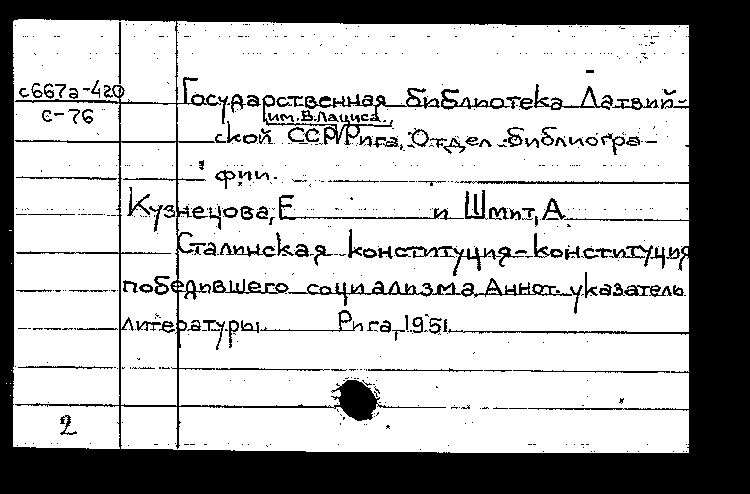 с667а-420
с-76
Государственная библиотека Латвий-
им. В. Лациса.,
ской ССР, Рига, Отдел библиогра-
фии.
Кузнецова, Е и Шмит, А.
Сталинская конституция-конституция
победившего социализма. Аннот. указатель
литературы. Рига, 1951.
2